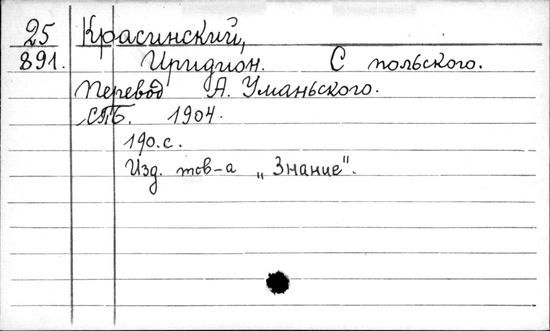 25 Красинский,
891. Иридион. С польского.
Перевод А. Уманьского.
СПБ. 1904.
190.с.
Изд. тов-а „Знание".